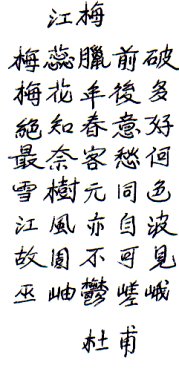 江梅
梅蕊臘前破
梅花年後多
絕知春意好
最奈客愁何
雪樹元同色
江風亦自波
故園不可見
巫岫鬱嵯峨
杜甫